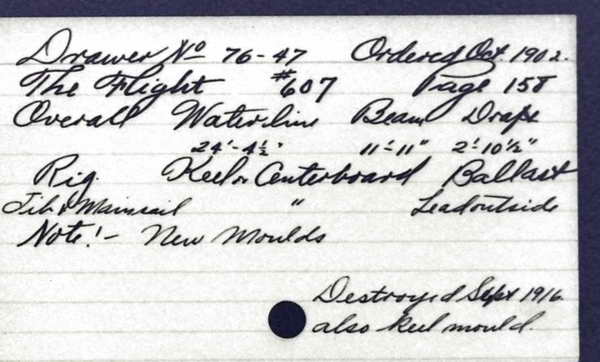 Drawer No 76-47 Ordered Oct. 1902.
The Flight #607 Page 158
Overall Waterline Beam Draft
24'-4½" 11'-11" 2'-10½"
Rig. Keel or Centerboard Ballast
Jib & Mainsail " Lead outside
Note! - New Moulds
Destroyed Sept 1916.
also keel mould.